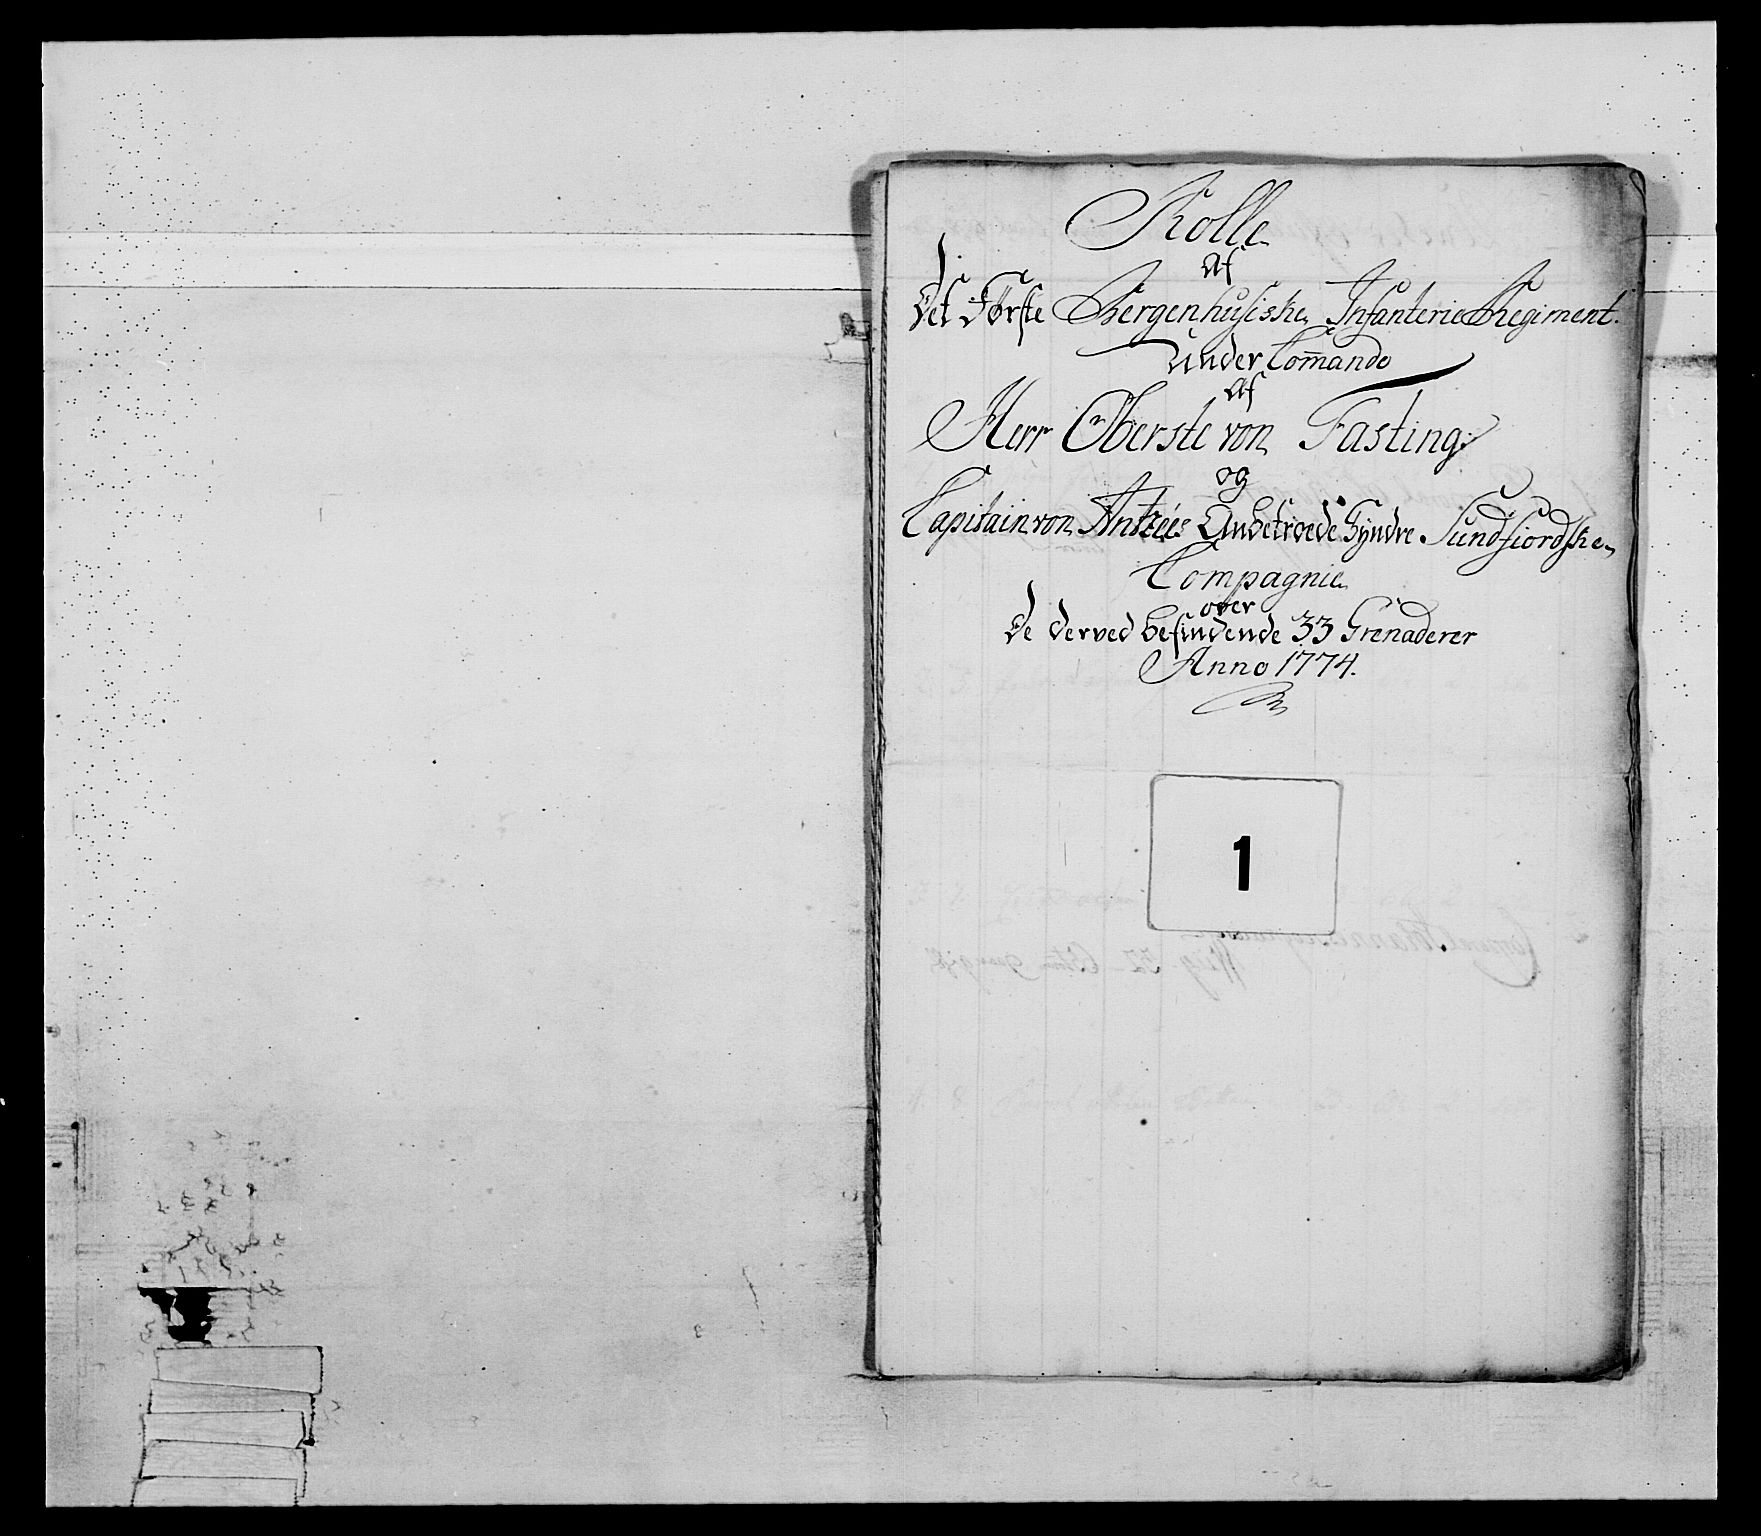 Rolle
Af
Det Første Bergenhusiske Infanterie Regiment.
Under Com̄ando
Af
Herr Oberste von Fasting
og
Capitain von Antzée Anbetroede Syndre Sundfiordske
Compagnie
over
De derved befindende 33 Grenaderer
Anno 1774.
1